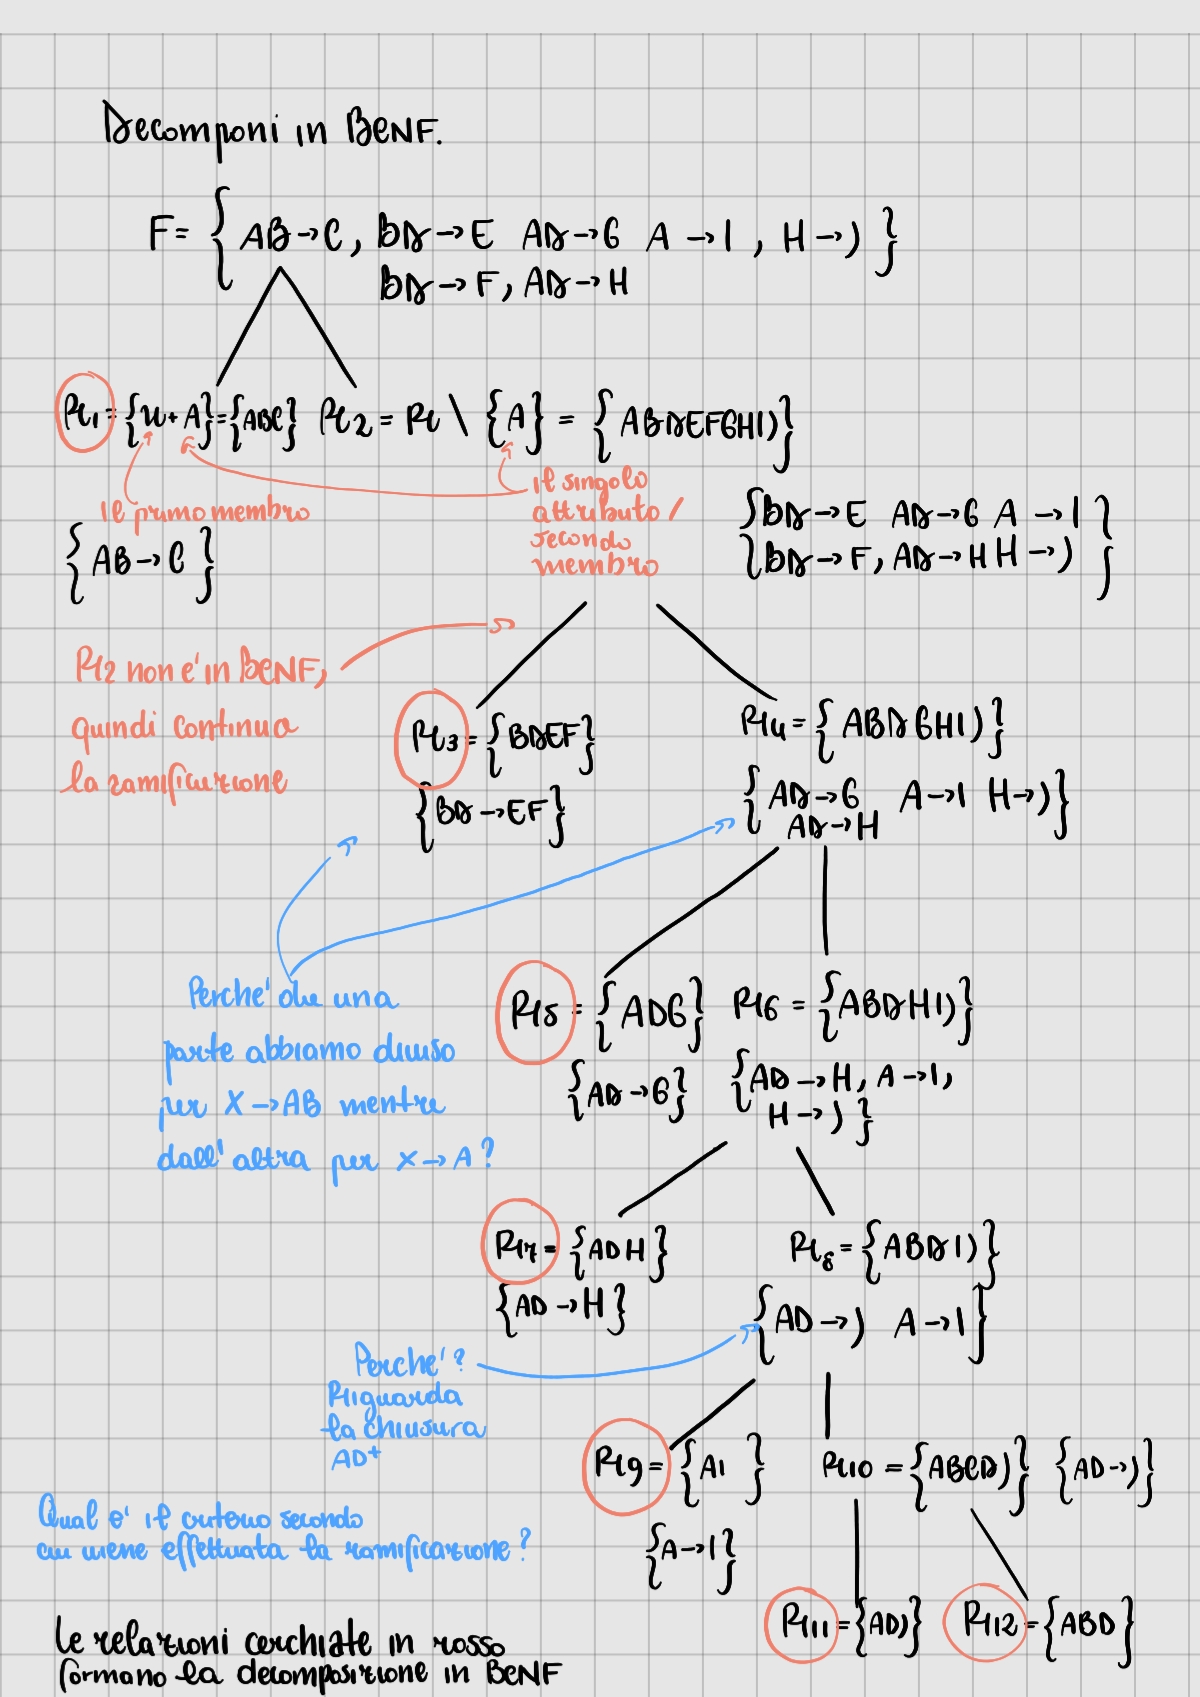 Decomponi in BCNF.
F = { AB → C, BD → E AD → G A → I , H → J }
BD → F, AD → H
R1 = {X + A} = {ABC} R2 = R \ {A} = { ABDEFGHIJ}
il primo membro
il singolo
attributo /
secondo
membro
{ AB → C }
{BD → E AD → G A → I
BD → F, AD → H H → J }
R2 non e' in BCNF,
quindi continua
la ramificazione
R3 = {BDEF}
{BD → EF}
R4 = { ABDGHIJ}
{ AD → G A → I H → J}
AD → H
Perche' da una
parte abbiamo diviso
per X → AB mentre
dall'altra per X → A?
R5 = {ADG} R6 = {ABDHIJ}
{AD → G} {AD → H, A → I,
H → J }
R7 = {ADH}
{AD → H}
R8 = {ABDIJ}
{AD → J A → I}
Perche'?
Riguarda
la chiusura
AD+
R9 = {AI }
{A → I}
R10 = {ABCDJ} {AD → J}
Qual e' il criterio secondo
cui viene effettuata la ramificazione?
R11 = {ADJ} R12 = {ABD}
le relazioni cerchiate in rosso
formano la decomposizione in BCNF